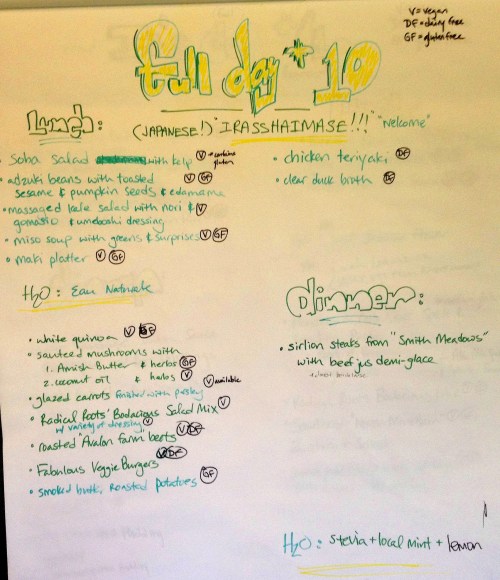 V = vegan
DF = dairy free
GF = gluten free
full day * 10
Lunch:
(JAPANESE!) "IRASSHAIMASE!!!" "welcome"
• Soba salad with kelp V * contains gluten
• adzuki beans with toasted V GF
sesame & pumpkin seeds & edamame
• massaged kale salad with nori & V
gomasio & umeboshi dressing
• miso soup with greens & surprises V GF
• maki platter V GF
• chicken teriyaki DF
• clear duck broth
H2O: Eau Naturale
• white quinoa V GF
• sauteed mushrooms with
1. Amish Butter & herbs GF
2. coconut oil & herbs V V available
• glazed carrots finished with parsley
• Radical Roots' Bodacious Salad Mix V
w/ variety of dressing V
• roasted "Avalon farm beets V DF
• Fabulous Veggie Burgers V DF
• smoked butter roasted potatoes GF
dinner:
• sirlion steaks from "Smith Meadows"
with beef jus demi-glace
H2O: stevia + local mint + lemon